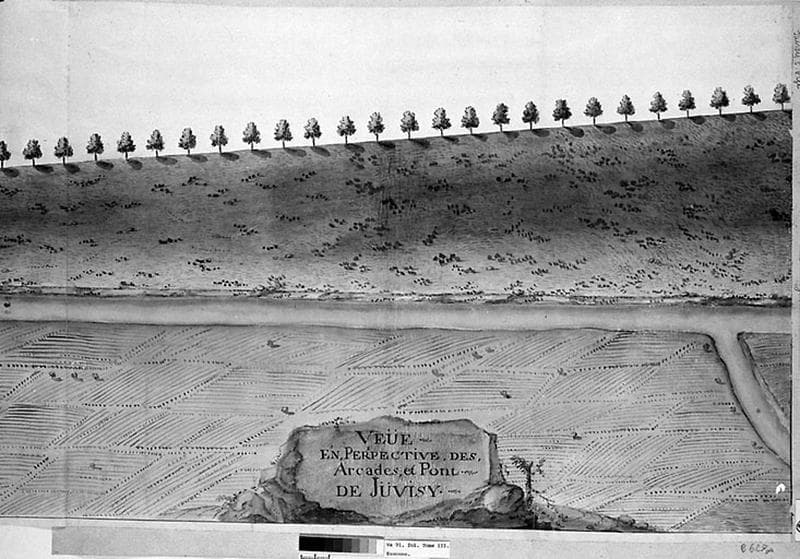 VEÜE
EN, PERPECTIVE. DES,
Arcades, et Pont
DE JÜVISY.
Va 91. fol. Tome III.
Essonne.